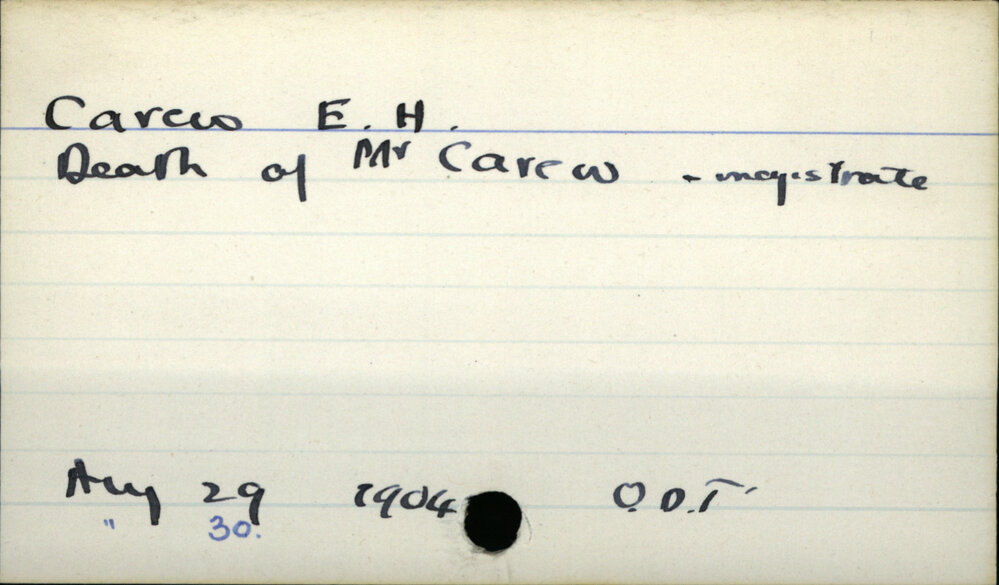 Carew E. H.
Death of Mr Carew - magistrate
Aug 29 1904 O.D.T.
" 30.